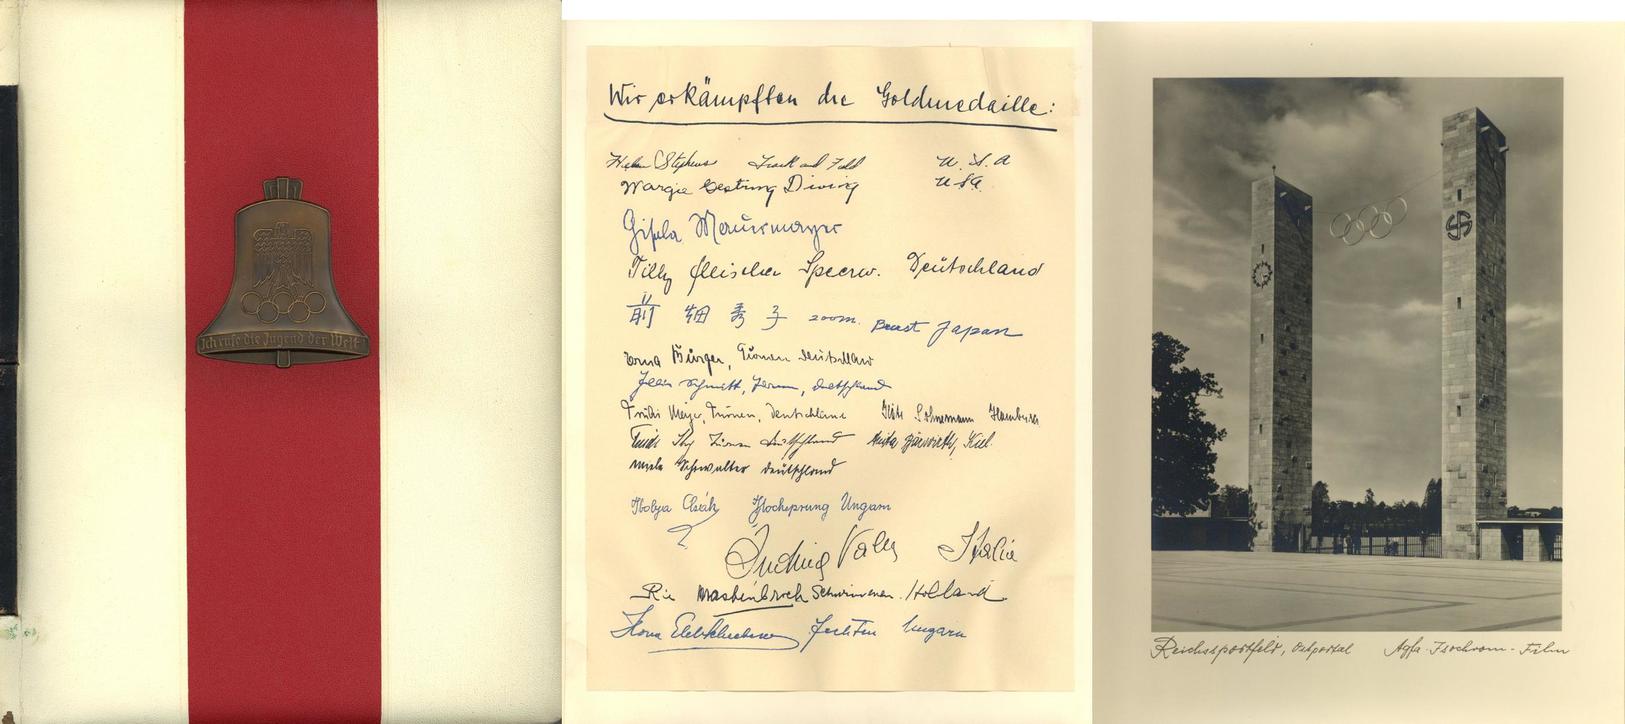 Ich rufe die Jugend der Welt!
Wir erkämpften die Goldmedaille:
Helen Stephens Track and Field U.S.A
Margie Gestring Diving USA.
Gisela Mauermayer
Tilly Fleischer Speerw. Deutschland
前 畑 秀 子 200m. Breast Japan
Erna Bürger, Turnen Deutschland
Schmitt, Turnen, Deutschland
Trudi Meyer, Turnen, Deutschland Käte Sohnemann Hamburg
Turnen Deutschland Anita Bärwirth, Kiel
Deutschland
Ibolya Csák Hochsprung Ungarn
Valla Italia
Rie Mastenbroek Schwimmen. Holland
Ilona Elek Fechten Ungarn
Reichssportfeld, Ostportal Agfa-Isochrom-Film